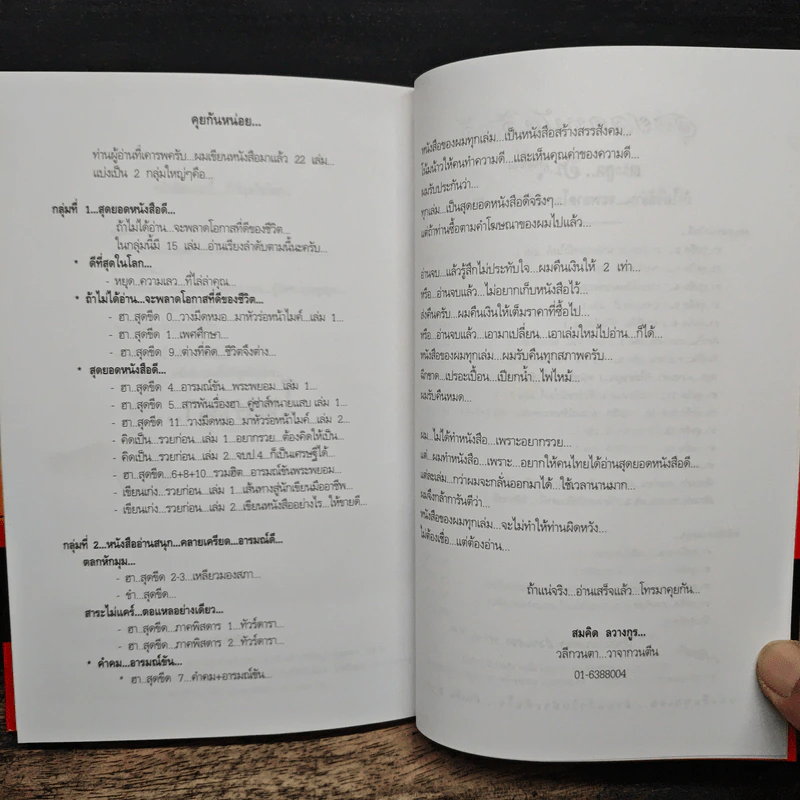 คุยกันหน่อย...
ท่านผู้อ่านที่เคารพครับ...ผมเขียนหนังสือมาแล้ว 22 เล่ม...
แบ่งเป็น 2 กลุ่มใหญ่ๆคือ...
กลุ่มที่ 1...สุดยอดหนังสือดี...
ถ้าไม่ได้อ่าน...จะพลาดโอกาสที่ดีของชีวิต...
ในกลุ่มนี้มี 15 เล่ม...อ่านเรียงลำดับตามนี้นะครับ...
* ดีที่สุดในโลก...
- หยุด..ความเลว...ที่ไล่ล่าคุณ...
* ถ้าไม่ได้อ่าน...จะพลาดโอกาสที่ดีของชีวิต...
- ฮา..สุดขีด 0...วางมีดหมอ...มาหัวร่อหน้าไมค์...เล่ม 1...
- ฮา..สุดขีด 1...เพศศึกษา...
- ฮา..สุดขีด 9...ต่างที่คิด...ชีวิตจึงต่าง...
* สุดยอดหนังสือดี...
- ฮา..สุดขีด 4...อารมณ์ขัน...พระพยอม...เล่ม 1...
- ฮา..สุดขีด 5...สารพันเรื่องฮา...คู่ซ่าส์ทนายแสบ เล่ม 1...
- ฮา..สุดขีด 11...วางมีดหมอ...มาหัวร่อหน้าไมค์...เล่ม 2...
- คิดเป็น...รวยก่อน...เล่ม 1...อยากรวย...ต้องคิดให้เป็น...
- คิดเป็น...รวยก่อน...เล่ม 2..จบป.4...ก็เป็นเศรษฐีได้...
- ฮา..สุดขีด...6+8+10...รวมฮิต...อารมณ์ขันพระพยอม...
- เขียนเก่ง...รวยก่อน...เล่ม 1...เส้นทางสู่นักเขียนมืออาชีพ...
- เขียนเก่ง...รวยก่อน...เล่ม 2...เขียนหนังสืออย่างไร...ให้ขายดี...
กลุ่มที่ 2...หนังสืออ่านสนุก...คลายเครียด...อารมณ์ดี...
ตลกหักมุม...
- ฮา..สุดขีด 2-3...เหลียวมองสภา...
- ขำ..สุดขีด...
สาระไม่แคร์...ตอแหลอย่างเดียว...
- ฮา..สุดขีด...ภาคพิสดาร 1...ทัวร์ดารา...
- ฮา..สุดขีด...ภาคพิสดาร 2...ทัวร์ดารา...
* คำคม...อารมณ์ขัน...
* ฮา..สุดขีด 7...คำคม+อารมณ์ขัน...
หนังสือของผมทุกเล่ม...เป็นหนังสือสร้างสรรสังคม...
โน้มน้าวให้คนทำความดี...และเห็นคุณค่าของความดี...
ผมรับประกันว่า...
ทุกเล่ม...เป็นสุดยอดหนังสือดีจริงๆ...
แต่ถ้าท่านซื้อตามคำโฆษณาของผมไปแล้ว...
อ่านจบ...แล้วรู้สึกไม่ประทับใจ...ผมคืนเงินให้ 2 เท่า...
หรือ..อ่านจบแล้ว...ไม่อยากเก็บหนังสือไว้...
ส่งคืนครับ...ผมคืนเงินให้เต็มราคาที่ซื้อไป...
หรือ..อ่านจบแล้ว...เอามาเปลี่ยน...เอาเล่มใหม่ไปอ่าน...ก็ได้...
หนังสือของผมทุกเล่ม...ผมรับคืนทุกสภาพครับ...
ฉีกขาด...เปรอะเปื้อน...เปียกน้ำ...ไฟไหม้...
ผมรับคืนหมด...
ผม...ไม่ได้ทำหนังสือ...เพราะอยากรวย...
แต่..ผมทำหนังสือ...เพราะ...อยากให้คนไทยได้อ่านสุดยอดหนังสือดี...
แต่ละเล่ม...กว่าผมจะกลั่นออกมาได้...ใช้เวลานานมาก...
ผมจึงกล้าการันตีว่า...
หนังสือของผมทุกเล่ม...จะไม่ทำให้ท่านผิดหวัง...
ไม่ต้องเชื่อ...แต่ต้องอ่าน...
ถ้าแน่จริง...อ่านเสร็จแล้ว...โทรมาคุยกัน...
สมคิด ลวางกูร...
วลีกวนตา...วาจากวนตีน
01-6388004